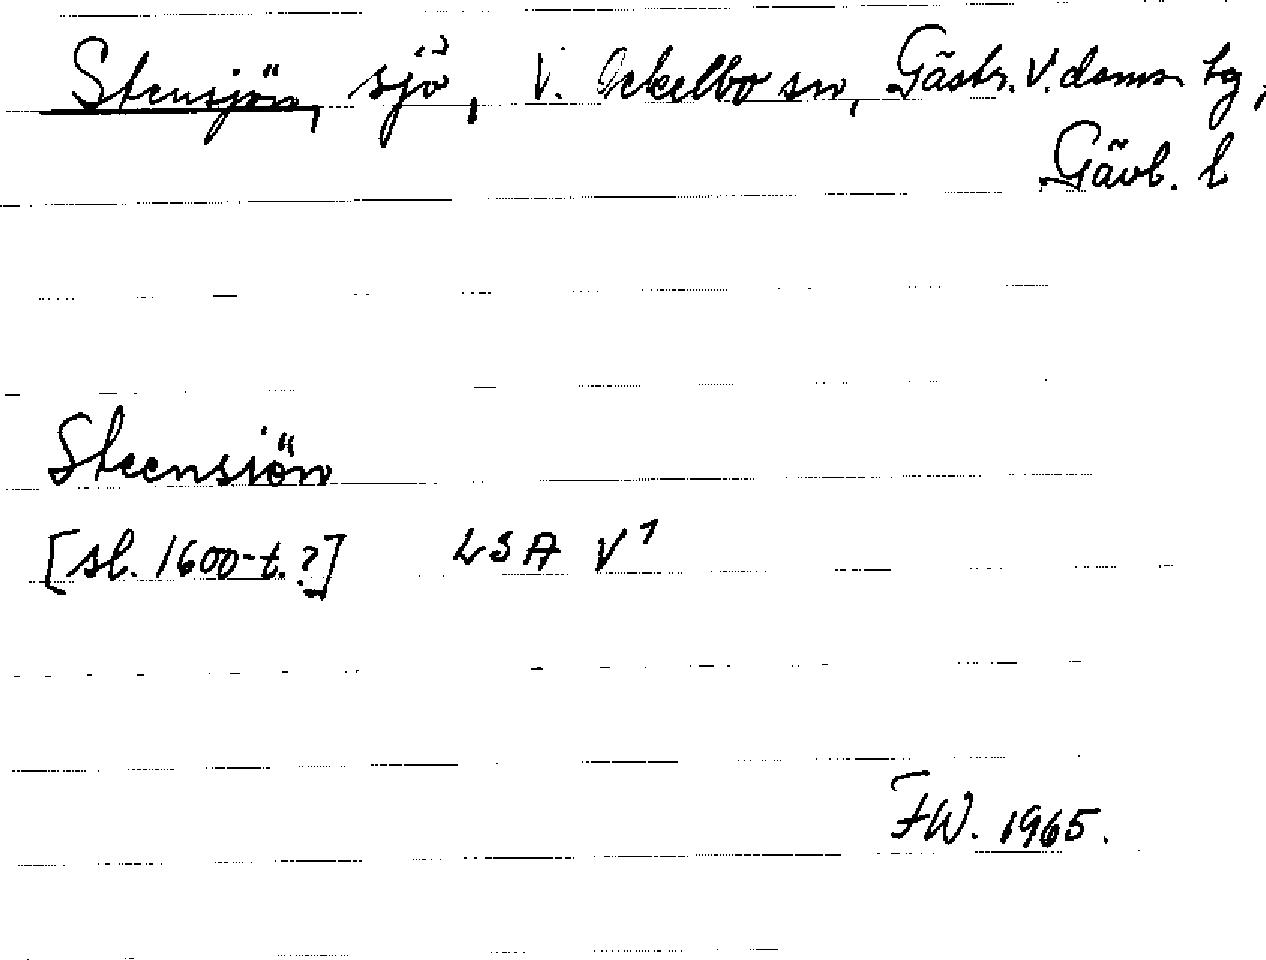 Stensjön, sjö, V. Ockelbo sn, Gästr. V. doms. tg,
Gävl. l
Steensiön
[sl. 1600-t.?] LSA V1
FW. 1965.